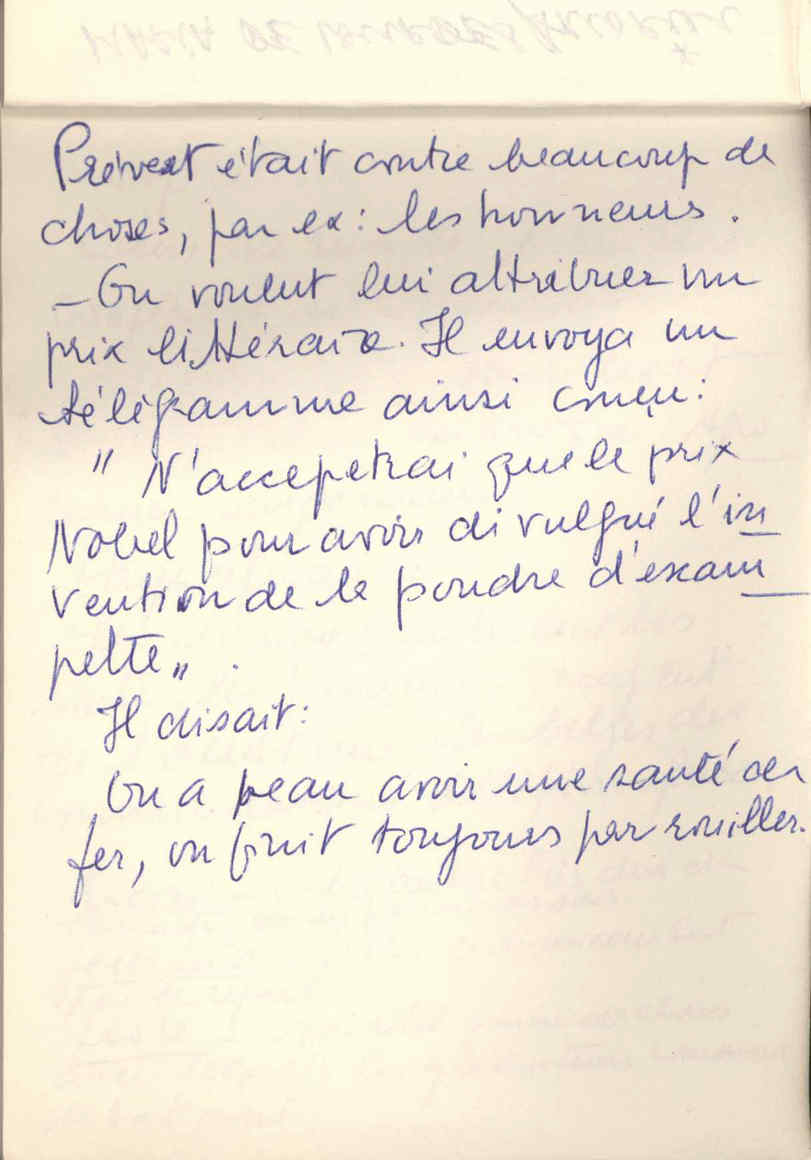 Prévert était contre beaucoup de
choses, par ex: les honneurs.
- On voulut lui attribuer un
prix littéraire. Il envoya un
télégramme ainsi conçu:
" N'accepetrai que le prix
Nobel pour avoir divulgué l'in
vention de la poudre d'escam
pette„.
Il disait:
On a beau avoir une santé de
fer, on finit toujours par rouiller.